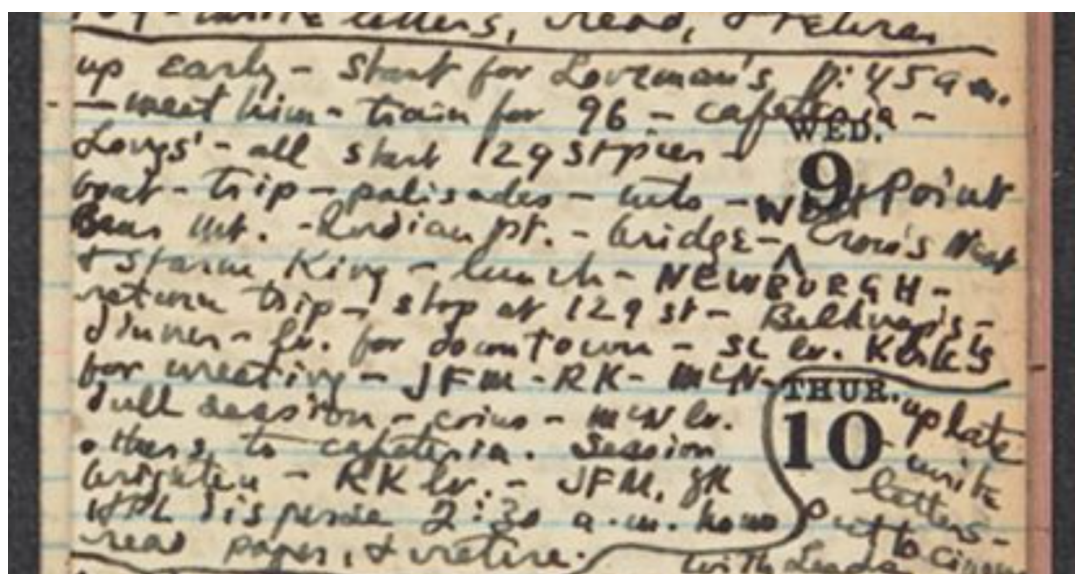 write letters, read, & retire
up early – start for Loveman's 8:45 a.m.
– meet him – train for 96 – cafeteria –
WED.
Longs' – all start 129 St pier –
9
boat – trip – palisades – into – West Point
Bear Mt. – Indian Pt. – bridge – Crow's Nest
& Storm King – lunch – NEWBURGH –
return trip – stop at 129 st – Belknap's –
dinner – lv. for downtown – SL lv. Kirk's
for meeting – JFM – RK – McN –
dull session – coins – McN lv.
others to cafeteria. Session
brighten – RK lv. – JFM, GK
HPL disperse 2:30 a.m. home
read paper, & retire.
THUR.
10
up late
– write
letters –
out to cinema
with Leeds